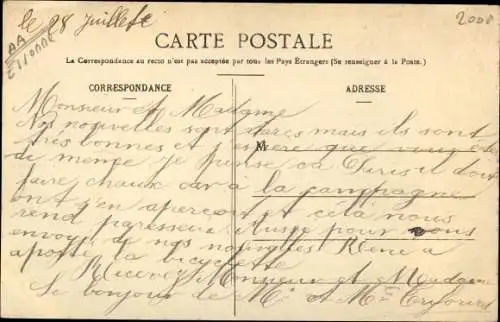 le 28 Juillet
2000
AA
ESSONNE
CARTE POSTALE
La Correspondance au recto n'est pas acceptée par tous les Pays Étrangers (Se renseigner à la Poste.)
CORRESPONDANCE
ADRESSE
M
Monsieur et Madame
Nos nouvelles sont rares mais ils sont
très bonnes et j'espère que vous êtes
de meme je pense ca Paris il doit
faire chaux car à la campagne
on s'en aperçoit et cela nous
rend paresseux Aussi pour vous
envoyer de nos nouvelles René a
apporté la bicyclette
Recevez Monsieur et Madame
le bonjour de Mr et Mme